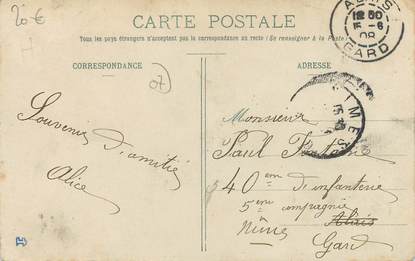 20 €
CARTE POSTALE
Tous les pays étrangers n'acceptent pas la correspondance au recto (Se renseigner à la Poste)
CORRESPONDANCE
ADRESSE
07
ALAIS
12 30
5 - 6
08
GARD
NIMES
Souvenir
d'amitié
Alice
Monsieur
Paul
40 em d'infanterie
5 em compagnie
Alais
Nîmes
Gard